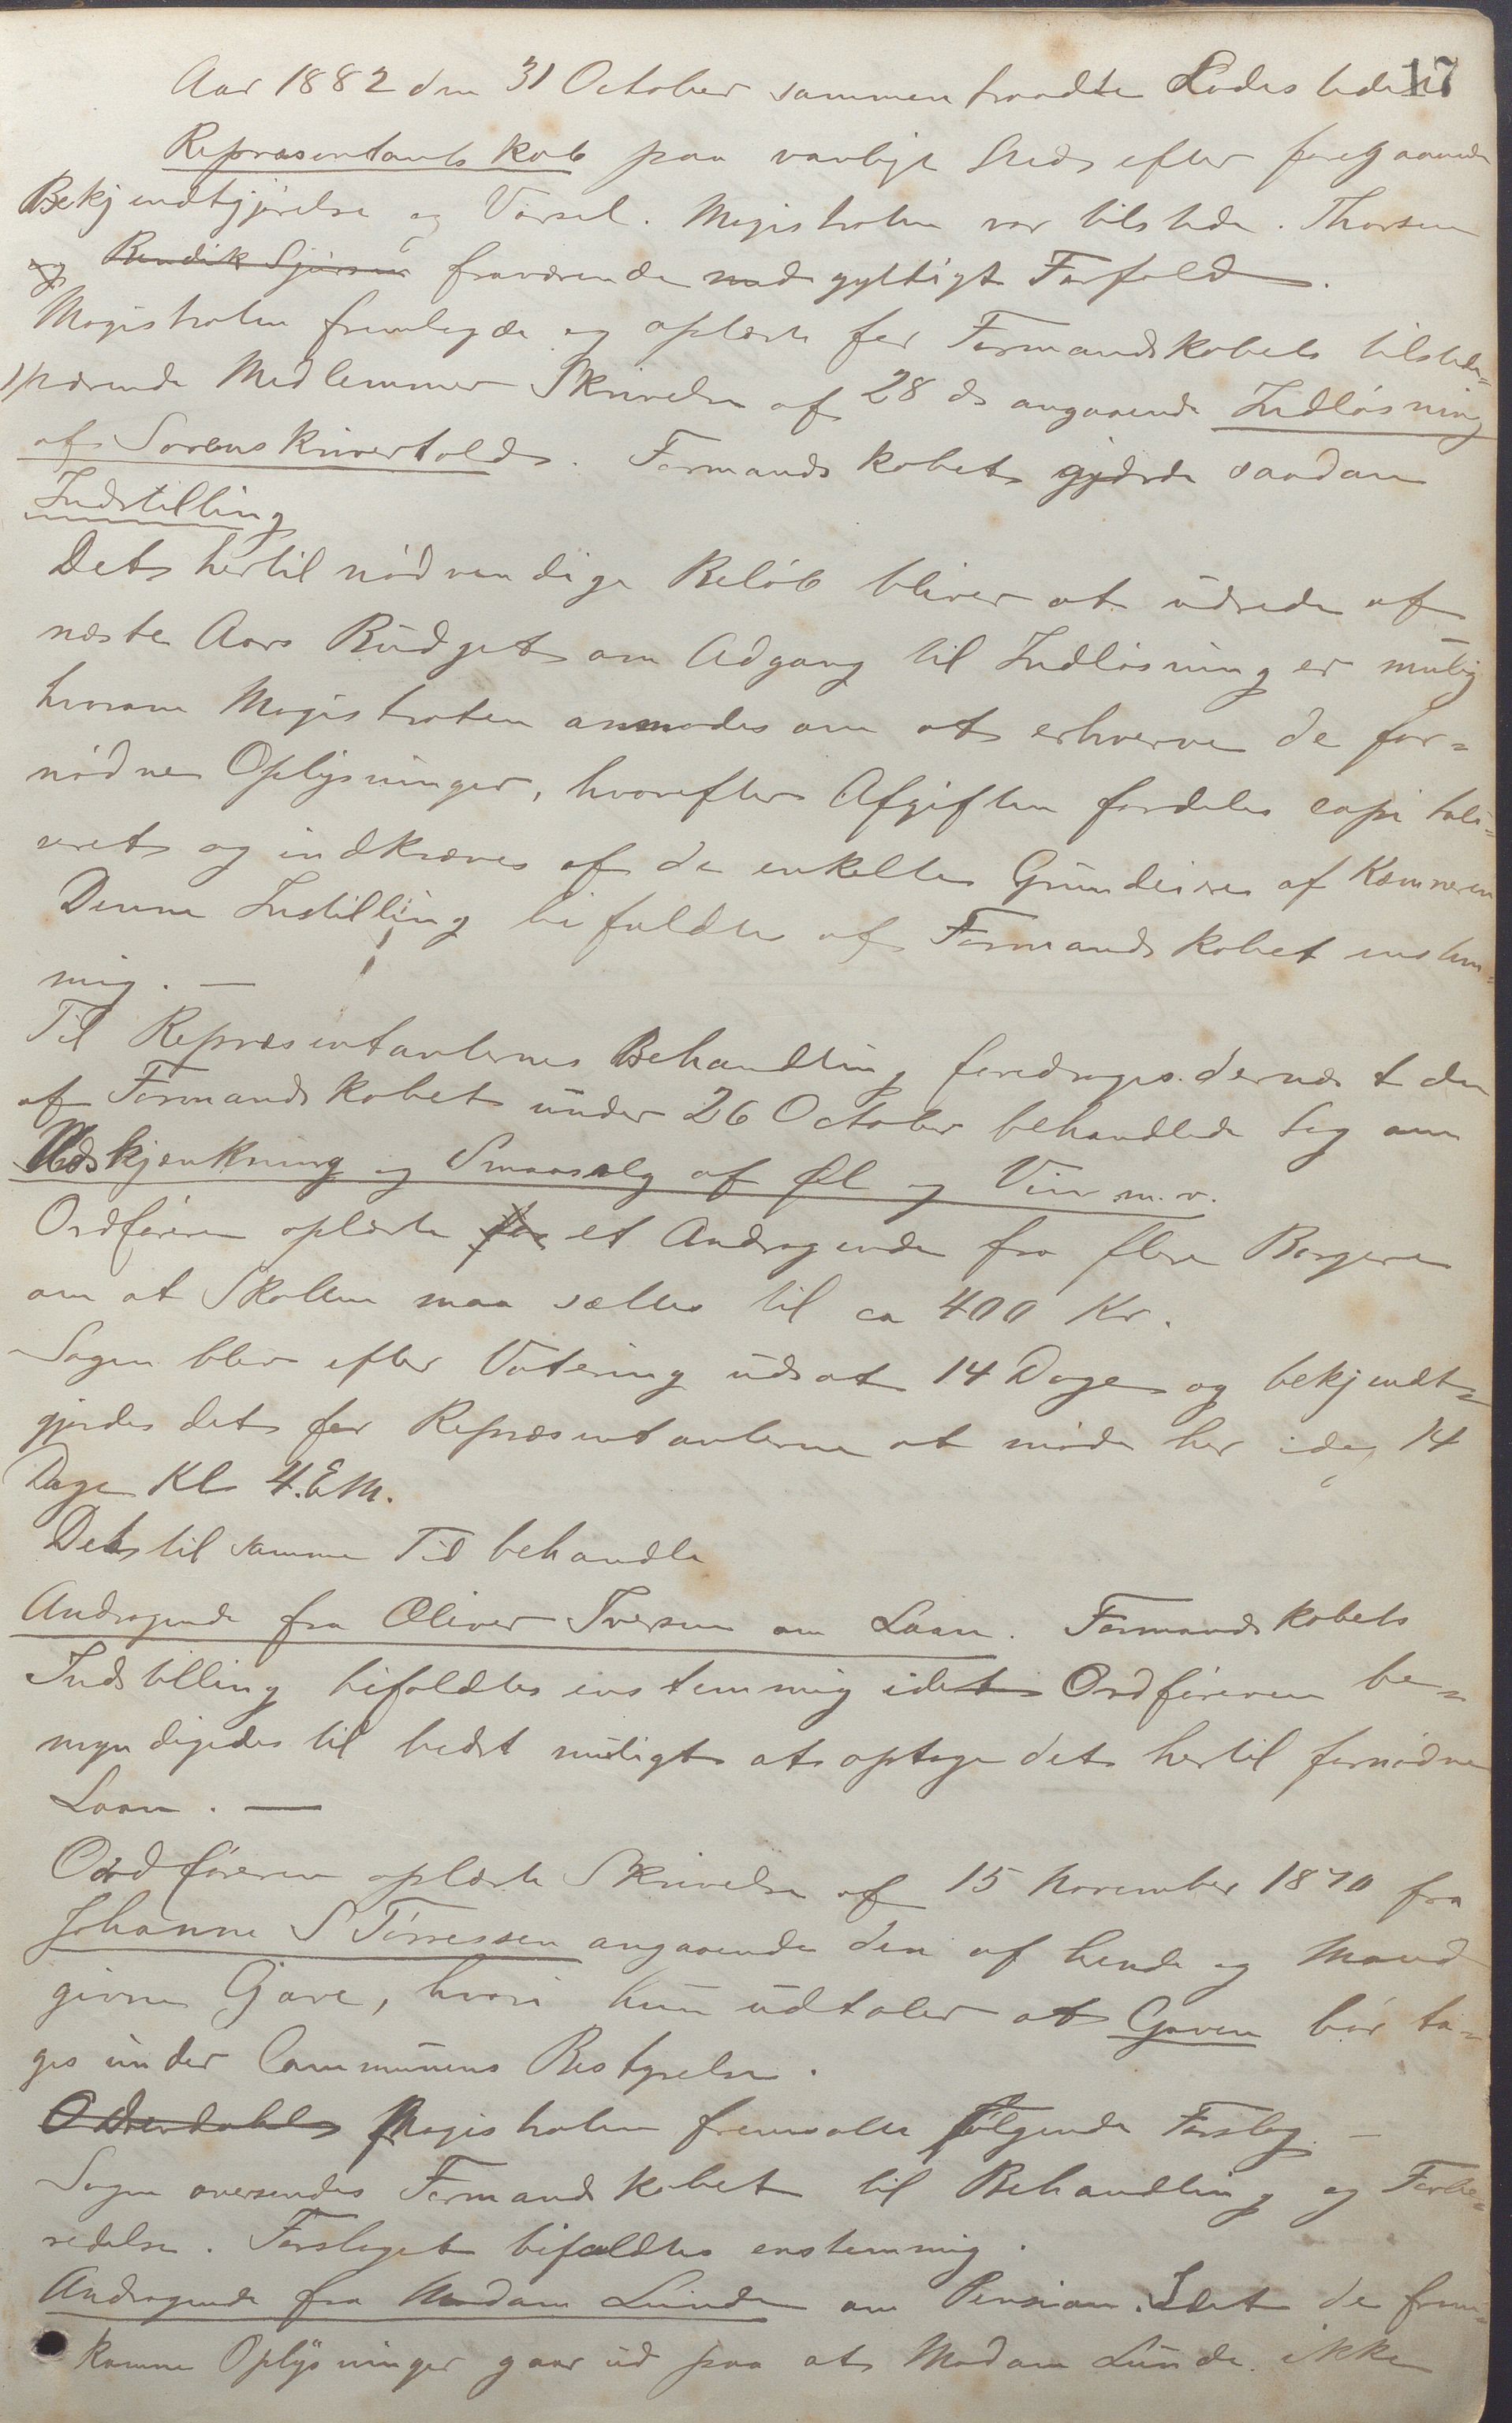 17
Aar 1882 den 31 October sammentraadte Ladestedets
Repræsentantskab paa vanlige Sted efter foregaaende
Bekjendtgjørelse og Varsel. Magistraten var tilstede. Thorsen
og Bendik Sjursen fraværende med gyldigt Forfald.
Magistraten fremlagde og oplæste for Formandskabets tilstede-
værende Medlemmer Skrivelse af 28 ds angaaende Indløsning
af Sorenskrivertold. Formandskabet gjorde saadan
Indstilling
Det hertil nødvendige Beløb bliver at udrede af
næste Aars Budget om Adgang til Indløsning er mulig
hvorom Magistraten anmodes om at erhverve de for-
nødne Oplysninger, hvorefter Afgiften fordeles capitali-
seret og indkræves af de enkelte Grundeiere af Kæmneren
Denne Instilling bifaldtes af Formandskabet enstem-
mig. —
Til Repræsentanternes Behandling foredroges dernæst den
af Formandskabet under 26 October behandlede Sag om
Udskjænkning og Smaasalg af Øl og Vin m.v.
Ordføreren oplæste for et Andragende fra flere Borgere
om at Skatten maa sættes til ca 400 Kr.
Sagen blev efter Votering udsat 14 Dage og bekjendt-
gjordes det for Repræsentanterne at møde her idag 14
Dage Kl 4. E.M.
Det til samme Tid behandle
Andragende fra Oliver Iversen om Laan. Formandskabets
Indstilling bifaldtes enstemmig idet Ordføreren be-
myndigedes til bedst muligt at optage det hertil fornødne
Laan. —
Ordføreren oplæste Skrivelse af 15 November 1870 fra
Johanne S Tørressen angaaende den af hende og Mand
givne Gave, hvori hun udtaler at Gaven bør ta-
ges under Communens Bestyrelse.
Magistraten fremsatte følgende Forslag. —
Sagen oversendes Formandskabet til Behandling og Forbe-
redelse. Forslaget bifaldtes enstemmig.
Andragende fra Madam Lunde om Pension. Idet de frem-
komne Oplysninger gaar ud paa at Madam Lunde ikke